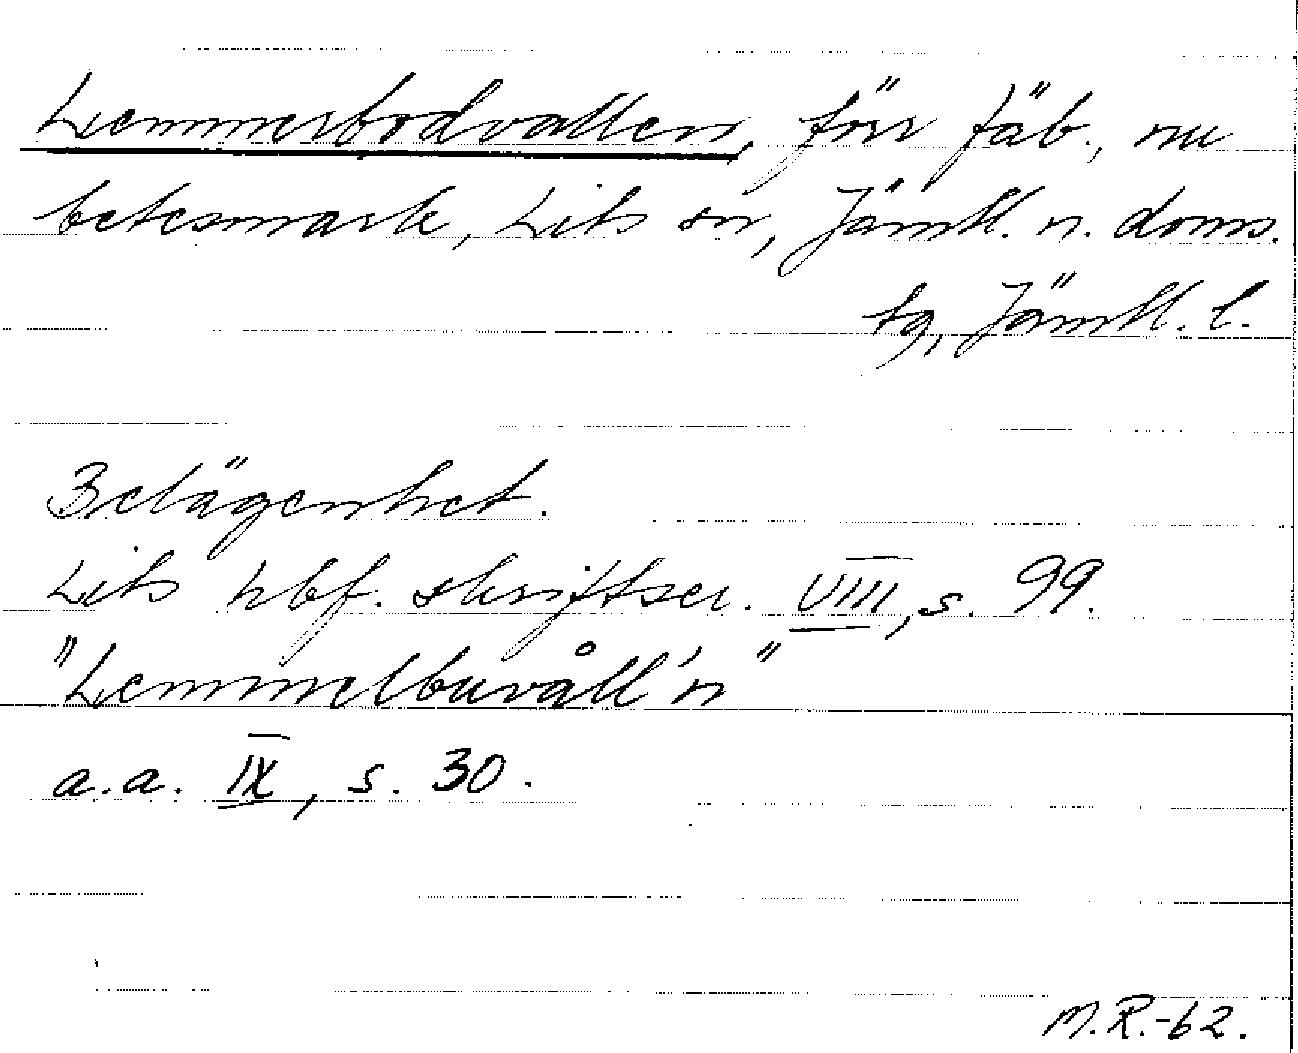 Lemmerbodvallen, förr fäb., nu
betesmark, Lits sn, Jämtl. n. doms.
tg, Jämtl. l.
Belägenhet.
Lits hbf. skriftser. VIII, s. 99.
"Lemmelbuvåll'n"
a.a. IX, s. 30.
M.R.-62.